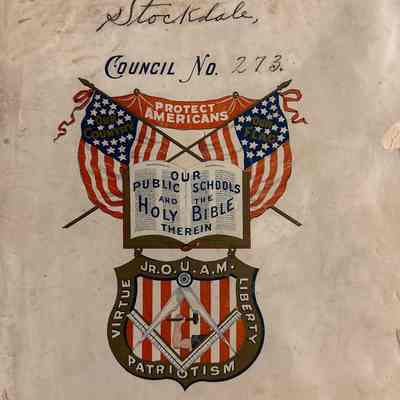 Stockdale,
COUNCIL NO. 273.
PROTECT
AMERICANS
OUR
COUNTRY
OUR
FLAG
OUR
PUBLIC SCHOOLS
AND THE
HOLY BIBLE
THEREIN
JR.O.U.A.M.
VIRTUE
LIBERTY
PATRIOTISM